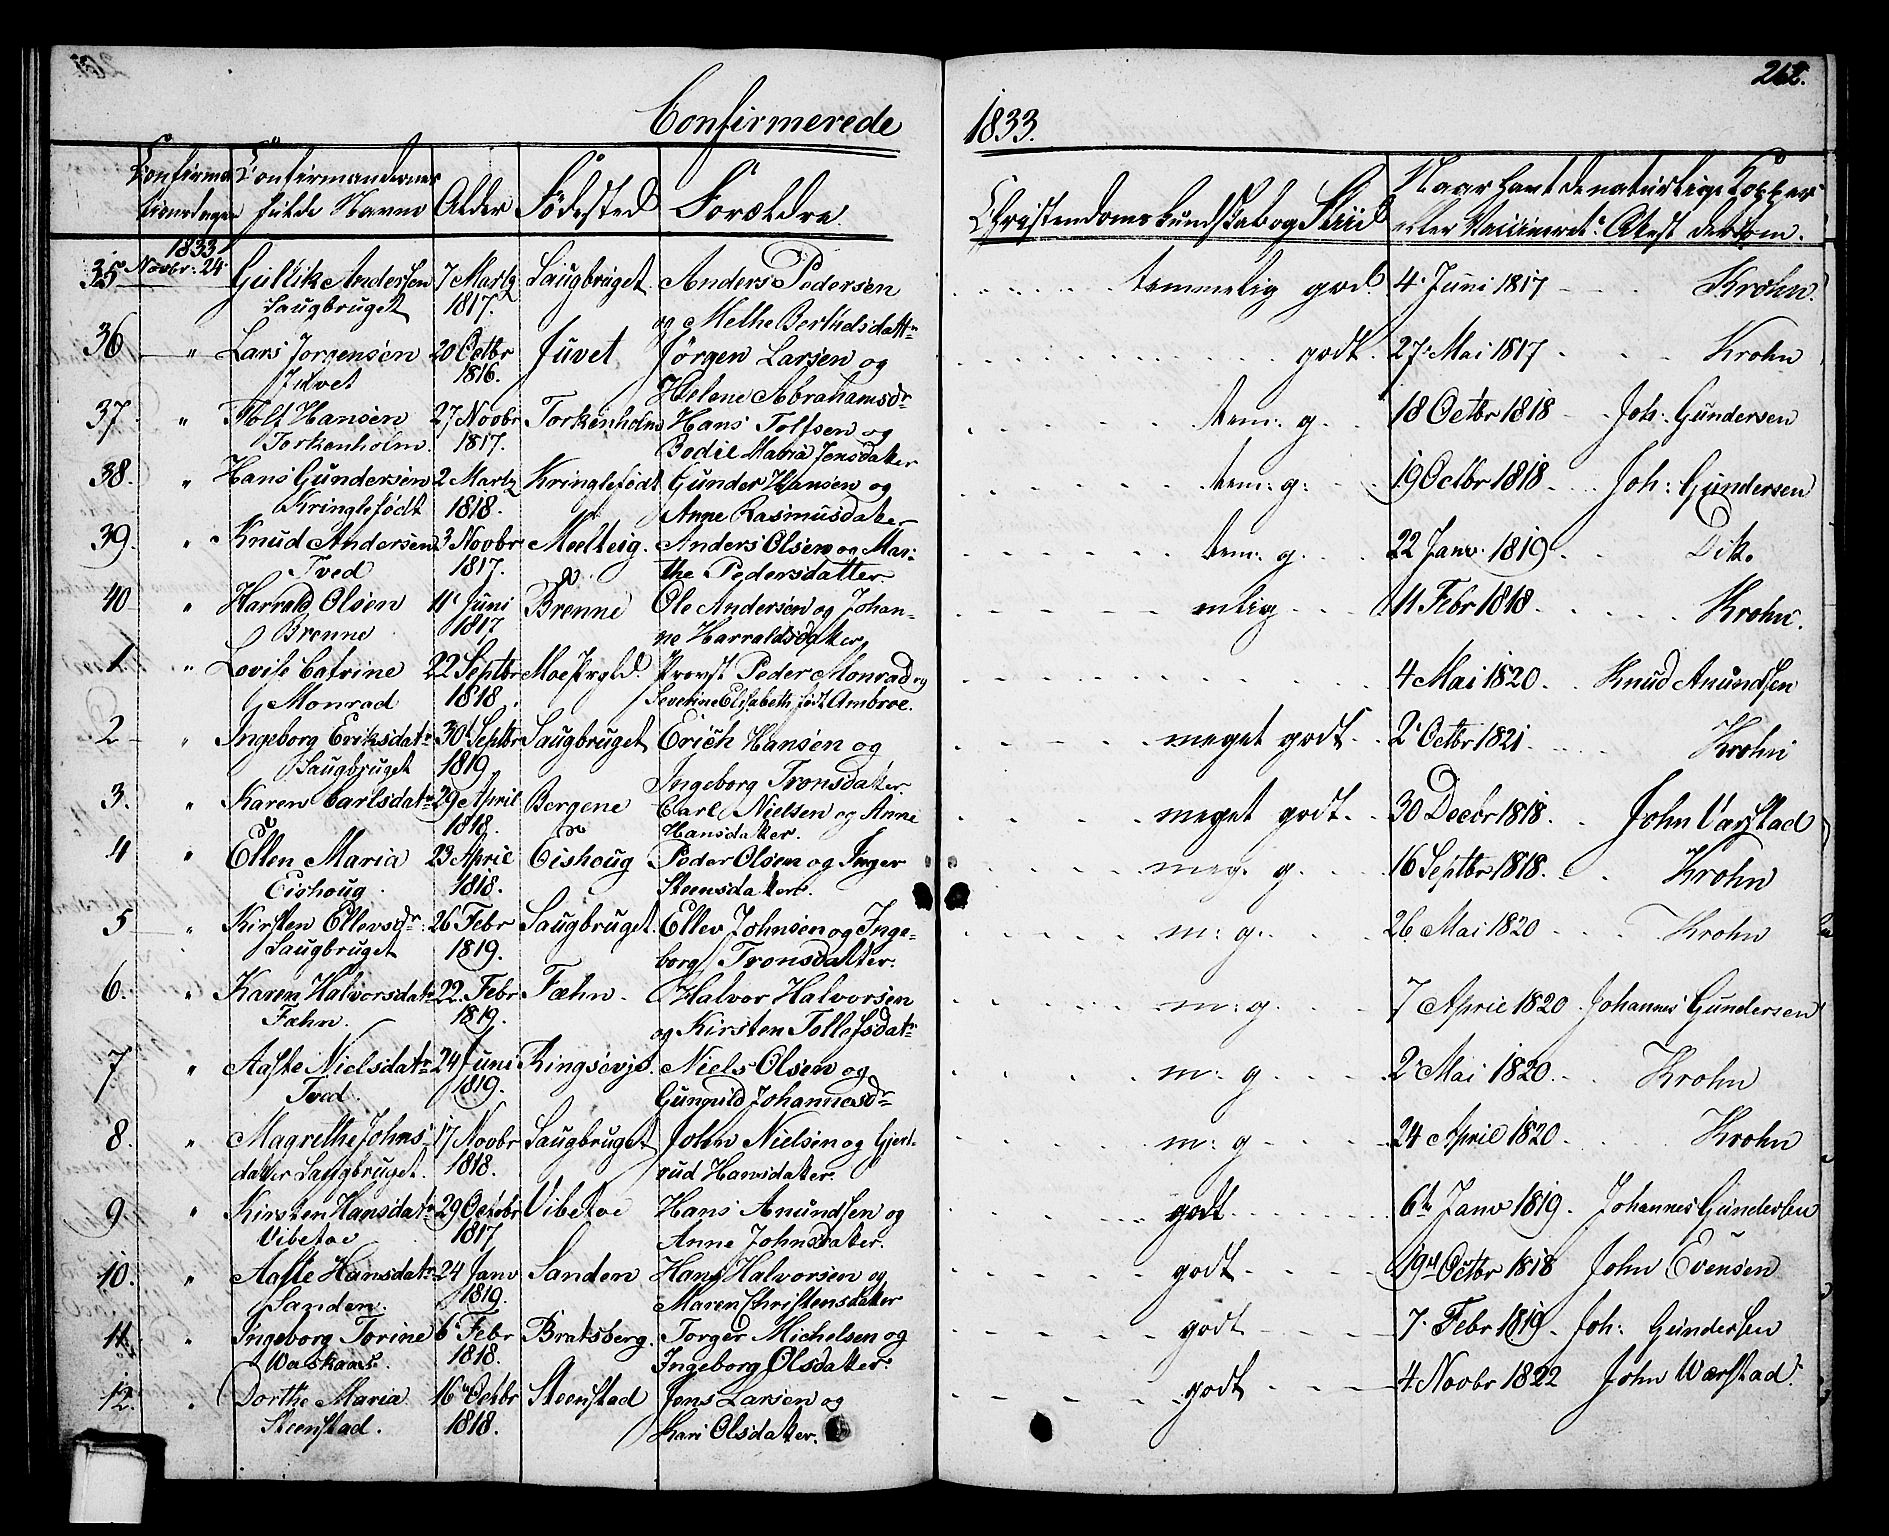 262.
Confirmerede 1833.
Confirmandernes fulde Navne Alder Födested Forældre Christendoms kundskab og Naar havt de naturlige Kopper eller Attest derom.
1833
35 Novbr: 24 Gullik Andersen 7 Martz Saugbruget. Anders Pedersen temmelig god. 4 Juni 1817 Krohn.
Saugbruget 1817. og Bertelsdattr
36 " Lars Jorgensen 20 Octbr Juvet Jørgen Larsen og godt. 27 Mai 1817 Krohn
Juvet 1816. Helene Abrahamsdr
37 " Hansen 27 Novbr Torkenholm Hans Tolfsen og tem: g. 18 Octbr 1818 Joh: Gundersen
Torkenholm. 1817. Bodil Maria Jensdater
38. " Hans Gundersen 2 Martz Kringlefödt Gunder Hansen og tem: g: 19 Octbr 1818 Joh: Gundersen
Kringlefödt 1818. Anne Rasmusdater
39. " Knud Andersen 3 Novbr Meelteig. Anders Olsen og Mar= tem: g. 22 Janv. 1819 Dito
Tved 1817. the Pedersdatter.
40 " Harrald Olsen 11 Juni Brenne Ole Andersen og Johan= 11 Febr 1818 Krohn.
Brenne 1817 ne Harraldsdater
1 " Lovise Catrine 22 Septbr Moe Prgld. Provst Peder Monrad og 4 Mai 1820 Knud Anundsen
Monrad 1818. Severine Elisabeth født Ambroe.
2 " Ingeborg Eriksdatr 30 Septbr Saugbruget Erich Hansen og meget godt. 2 Octbr 1821 Krohn
Saugbruget 1819 Ingeborg Tronsdater.
3. " Karen Carlsdatr 29 April Bergene Carl Nielsen og Anne meget godt. 30 Decbr 1818. John Varstad
1818. Hansdater.
4 " Ellen Maria 23 April Eishoug Peder Olsen og Inger meg. g. 16 Septbr 1818. Krohn
Eishoug. 1818. Steensdater.
5 " Kirsten Ellevsdr: 26 Febr Saugbruget. Ellev Johnsen og Inge= m: g. 26 Mai 1820 Krohn
Saugbruget 1819. borg Tronsdatter.
6. " Karen Halvorsdatr 22. Febr Fæhn. Halvor Halvorsen m: g. 7 April 1820. Johannes Gundersen
Fæhn. 1819. og Kirsten Tollefsdatr
7 " Aaste Nielsdatr 24 Juni Niels Olsen og m: g. 2 Mai 1820. Krohn
Tved. 1819. Gunnild Johannesdr
8. " Magrethe Johns= 17 Novbr Saugbruget John Nielsen og Gjert= m: g 24 April 1820. Krohn
datter Saugbruget. 1818. rud Hansdater.
9 " Kirsten Hansdatr 29 Octobr Vibetoe Hans Anundsen og godt 6te Janv 1819. Johannes Gundersen
Vibetoe 1817 Anne Johnsdater.
10. " Aaste Hansdatr 24 Janv Sanden Hans Halvorsen og godt 19de Octbr 1818 John Evensen
Sanden. 1819. Maren Christensdater
11. " Ingeborg Torine 6 Febr Bratsberg. Torger Michelsen og godt 7. Febr 1819. Joh: Gundersen
1818. Ingeborg Olsdatter.
12. " Dorthe Maria 16 Octbr Steenstad Jens Larsen og godt 4 Novbr 1822 John Wærstad.
Steenstad. 1818. Kari Olsdater.